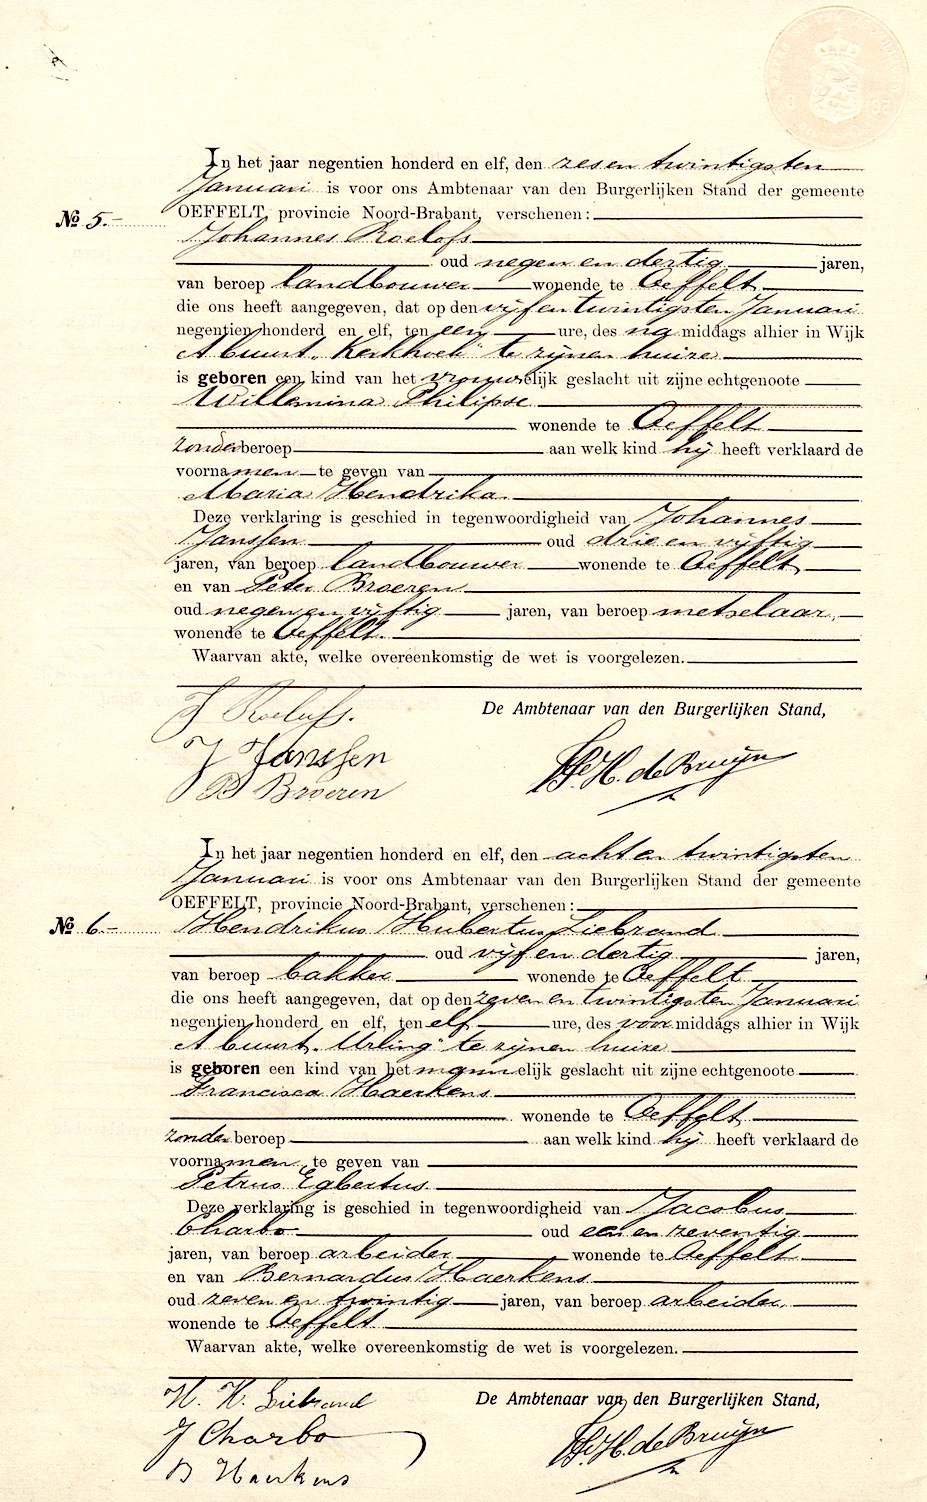 In het jaar negentien honderd en elf, den zes en twintigsten
Januari is voor ons Ambtenaar van den Burgerlijken Stand der gemeente
OEFFELT, provincie Noord-Brabant, verschenen:
№ 5.
Johannes Roelofs
oud negen en dertig jaren,
van beroep landbouwer wonende te Oeffelt
die ons heeft aangegeven, dat op den vijf en twintigsten Januari
negentien honderd en elf, ten een ure, des na middags alhier in Wijk
A buurt "Kerkhoek" te zijnen huize
is geboren een kind van het vrouwelijk geslacht uit zijne echtgenoote
Willemina Philipse
wonende te Oeffelt
zonder beroep aan welk kind hij heeft verklaard de
voornamen te geven van
Maria Hendrika
Deze verklaring is geschied in tegenwoordigheid van Johannes
Janssen oud drie en vijftig
jaren, van beroep landbouwer wonende te Oeffelt
en van Peter Broeren
oud negen en vijftig jaren, van beroep metselaar,
wonende te Oeffelt.
Waarvan akte, welke overeenkomstig de wet is voorgelezen.
De Ambtenaar van den Burgerlijken Stand,
J Roelofs.
J Janssen
P Broeren
H. de Bruijn
In het jaar negentien honderd en elf, den acht en twintigsten
Januari is voor ons Ambtenaar van den Burgerlijken Stand der gemeente
OEFFELT, provincie Noord-Brabant, verschenen:
№ 6.
Hendrikus Hubertus Liebrand
oud vijf en dertig jaren,
van beroep bakker wonende te Oeffelt
die ons heeft aangegeven, dat op den zeven en twintigsten Januari
negentien honderd en elf, ten elf ure, des voor middags alhier in Wijk
A buurt "Urling" te zijnen huize
is geboren een kind van het mannelijk geslacht uit zijne echtgenoote
Francisca Haerkens
wonende te Oeffelt
zonder beroep aan welk kind hij heeft verklaard de
voornamen te geven van
Petrus Egbertus
Deze verklaring is geschied in tegenwoordigheid van Jacobus
Charbo oud een en zeventig
jaren, van beroep arbeider wonende te Oeffelt
en van Bernardus Haerkens
oud zeven en twintig jaren, van beroep arbeider
wonende te Oeffelt
Waarvan akte, welke overeenkomstig de wet is voorgelezen.
De Ambtenaar van den Burgerlijken Stand,
H. H. Liebrand
J Charbo
B Haerkens
H. de Bruijn